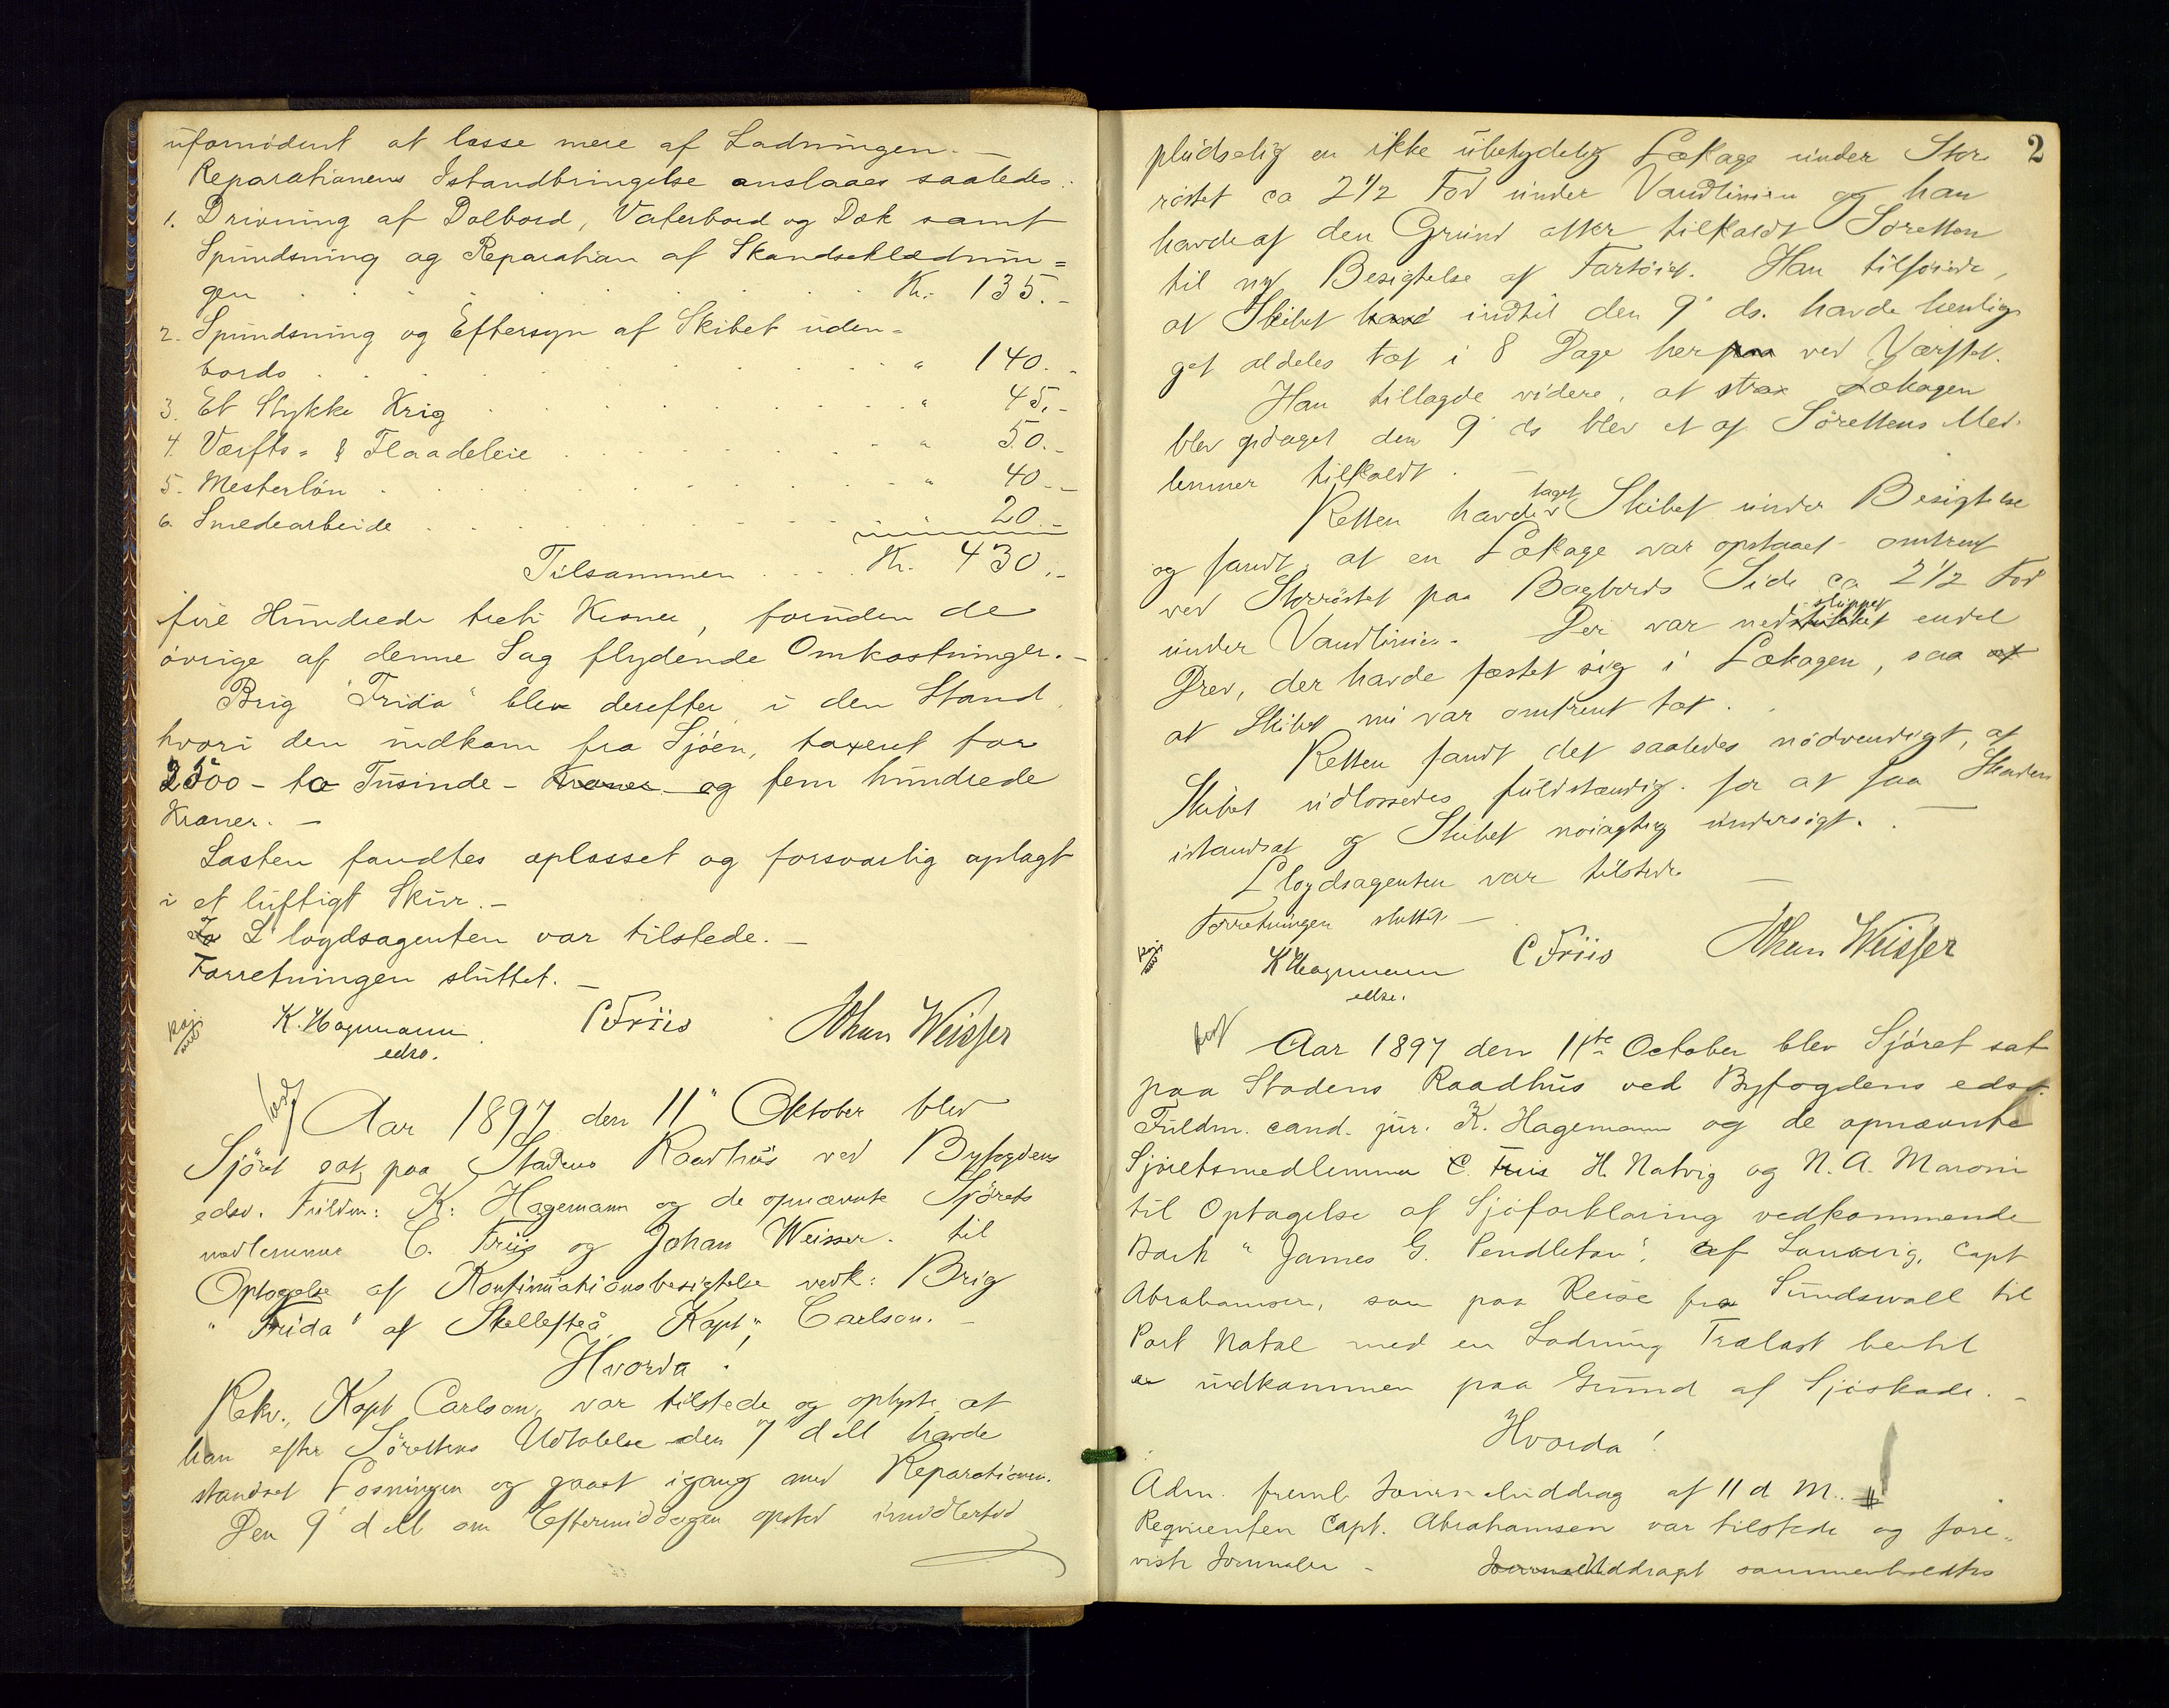 ufornødent at losse mere af Ladningen. —
Reparationens Istandbringelse anslaaes saaledes:
1. Drivning af Dolbord, Vaterbord og Dæk samt
Spundsning og Reparation af Skandseklædnin=
gen . . . . . . . . . . Kr. 135.-
2. Spundsning og Eftersyn af Skibet uden=
bords . . . . . . . . . . " 140.-
3. Et Stykke Krig . . . . . . . . " 45.-
4. Værfts= & Flaadeleie . . . . . . " 50.-
5. Mesterløn . . . . . . . . . " 40.-
6. Smedearbeide . . . . . . . . " 20.-
Tilsammen . . . . Kr. 430.-
fire Hundrede treti Kroner, foruden de
øvrige af denne Sag flydende Omkostninger. —
Brig "Frida" blev derefter i den Stand,
hvori den indkom fra Sjøen, taxeret for
2500 - to Tusinde - Kroner og fem hundrede
Kroner. —
Lasten fandtes oplosset og forsvarlig oplagt
i et luftigt Skur. —
Lloydsagenten var tilstede. —
Forretningen sluttet. —
K. Hagemann C Friis Johan Weisser
edsv.
Aar 1897 den 11" Oktober blev
Sjöret sat paa Stadens Raadhus ved Byfogdens
edsv. Fuldm: K: Hagemann og de opnævnte Sjörets
medlemmer C. Friis og Johan Weisser. til
Optagelse af Kontinuationsbesigtelse vedk: Brig
"Frida" af Skellefteå, Kapt" Carlson. —
Hvorda!
Rekv., Kapt Carlson, var tilstede og oplyste at
han efter Sörettens Udtalelse den 7' d M havde
standset Losningen og gaaet igang med Reparationen.
Den 9' d M om Eftermiddagen opstod imidlertid
2
pludselig en ikke ubetydelig Lækage under Stor
röstet ca 2 1/2 Fod under Vandlinien og han
havde af den Grund atter tilkaldt Söretten
til ny Besigtelse af Fartöiet. Han tilföiede,
at Skibet havd indtil den 9' ds. havde henlig
get aldeles tæt i 8 Dage her paa ved Værftet.
Han tillagde videre, at strax Lækagen
blev opdaget den 9' ds blev et af Sörettens Med-
lemmer tilkaldt. —
Retten havde taget Skibet under Besigtelse
og fandt, at en Lækage var opstaaet omtrent
ved Storröstet paa Bagbords Side ca 2 1/2 Fod
under Vandlinien. Der var nedstukket sluppet endel
Drev, der havde fæstet sig i Lækagen, saa at
at Skibet nu var omtrent tæt.
Retten fandt det saaledes nödvendigt, at
Skibet udlossedes fuldstændig. for at faa Skaden
istandsat og Skibet nöiagtig undersögt. —
Lloydsagenten var tilstede —
Forretningen sluttet —
K Hagemann C Friis Johan Weisser
edsv.
Aar 1897 den 11te October blev Sjöret sat
paa Stadens Raadhus ved Byfogdens edsv.
Fuldm. cand. jur. K. Hagemann og de opnævnte
Sjöretsmedlemmer C. Friis H. Natvig og N. A. Maroni
til Optagelse af Sjöforklaring vedkommende
Bark "James G. Pendleton", af Laurvig, Capt
Abrahamsen, som paa Reise fra Sundswall til
Port Natal med en Ladning Trælast
er indkommen paa Grund af Sjöskade. —
Hvorda!
Adm. freml. Journaluddrag af 11 d M. #
Requirenten Capt. Abrahamsen var tilstede og fore-
viste Journalen — Journaluddraget sammenholdtes